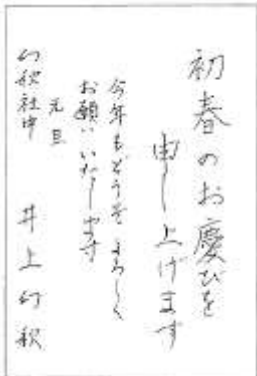 初春のお慶びを
申し上げます
今年もどうぞよろしく
お願いいたします
元旦
幻秋社中
井上幻秋